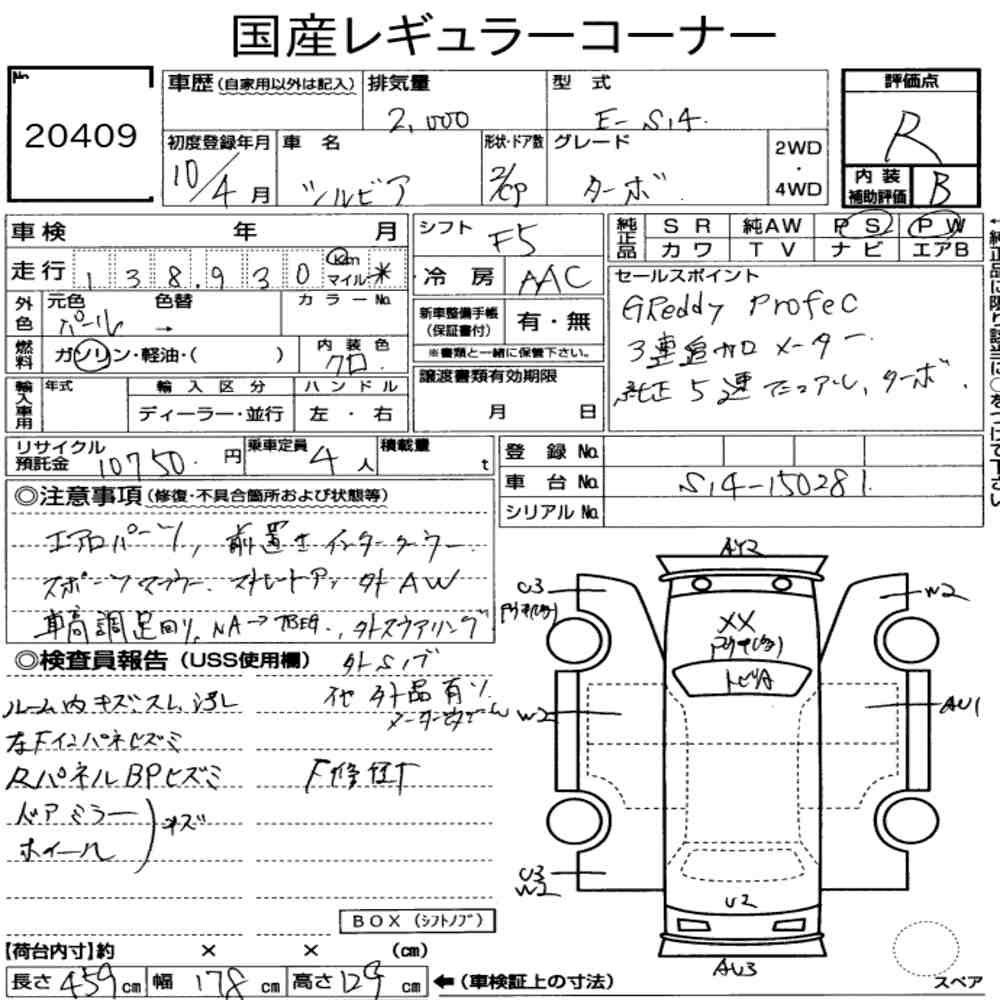 国産レギュラーコーナー
No
20409
車歴(自家用以外は記入) 排気量 2,000 型式 E-S14
初度登録年月 10/4月 車名 シルビア 形状・ドア数 2/CP グレード ターボ 2WD・4WD
評価点 R
内装補助評価 B
車検 年 月
走行 138,930 km マイル *
外色 元色 パール 色替 → カラーNo.
燃料 ガソリン・軽油・( ) 内装色 クロ
輸入車用 年式 輸入区分 ディーラー・並行 ハンドル 左・右
シフト F5
冷房 AAC
新車整備手帳(保証書付) 有・無
※書類と一緒に保管下さい。
譲渡書類有効期限 月 日
純正品 SR 純AW PS PW
カワ TV ナビ エアB
セールスポイント
GReddy ProfeC
3連追加メーター
純正5速マニュアル,ターボ.
リサイクル預託金 10750 円 乗車定員 4人 積載量 t
登録No.
車台No. S14-150281
シリアルNo.
◎注意事項(修復・不具合箇所および状態等)
エアロパーツ, 前置きインタークーラー
スポーツマフラー. ストレートアップ 外AW
車高調足回り, NA→ , 外ステアリング
◎検査員報告(USS使用欄) 外Sノブ
ルーム内キズ・スレ 汚レ 他外品有リ
左Fインパネヒズミ
RパネルBPヒズミ F修正有
ドアミラー
ホイール キズ
BOX(シフトノブ)
【荷台内寸】約 × × (cm)
長さ 459 cm 幅 178 cm 高さ 129 cm ←(車検証上の寸法)
AY2
U3
W2
XX
トビA
W2
AU1
U3
W2
U2
AU3
スペア